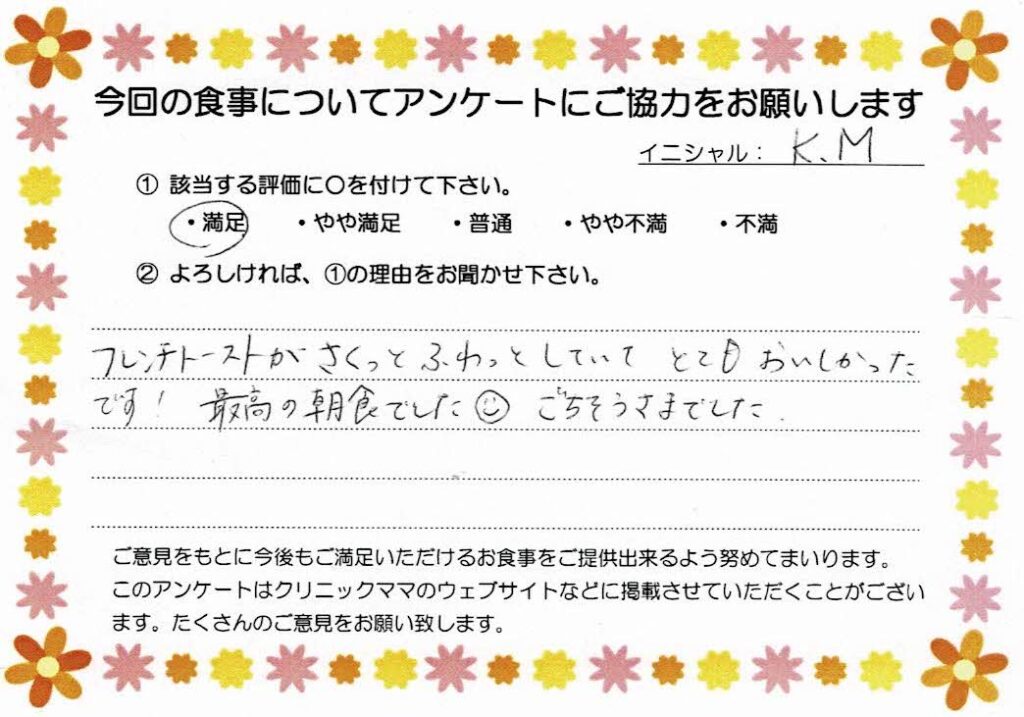 今回の食事についてアンケートにご協力をお願いします
イニシャル： K.M
① 該当する評価に〇を付けて下さい。
・満足 ・やや満足 ・普通 ・やや不満 ・不満
② よろしければ、①の理由をお聞かせ下さい。
フレンチトーストがさくっとふわっとしていて とてもおいしかった
です！ 最高の朝食でした☺ ごちそうさまでした.
ご意見をもとに今後もご満足いただけるお食事をご提供出来るよう努めてまいります。
このアンケートはクリニックママのウェブサイトなどに掲載させていただくことがござい
ます。たくさんのご意見をお願い致します。